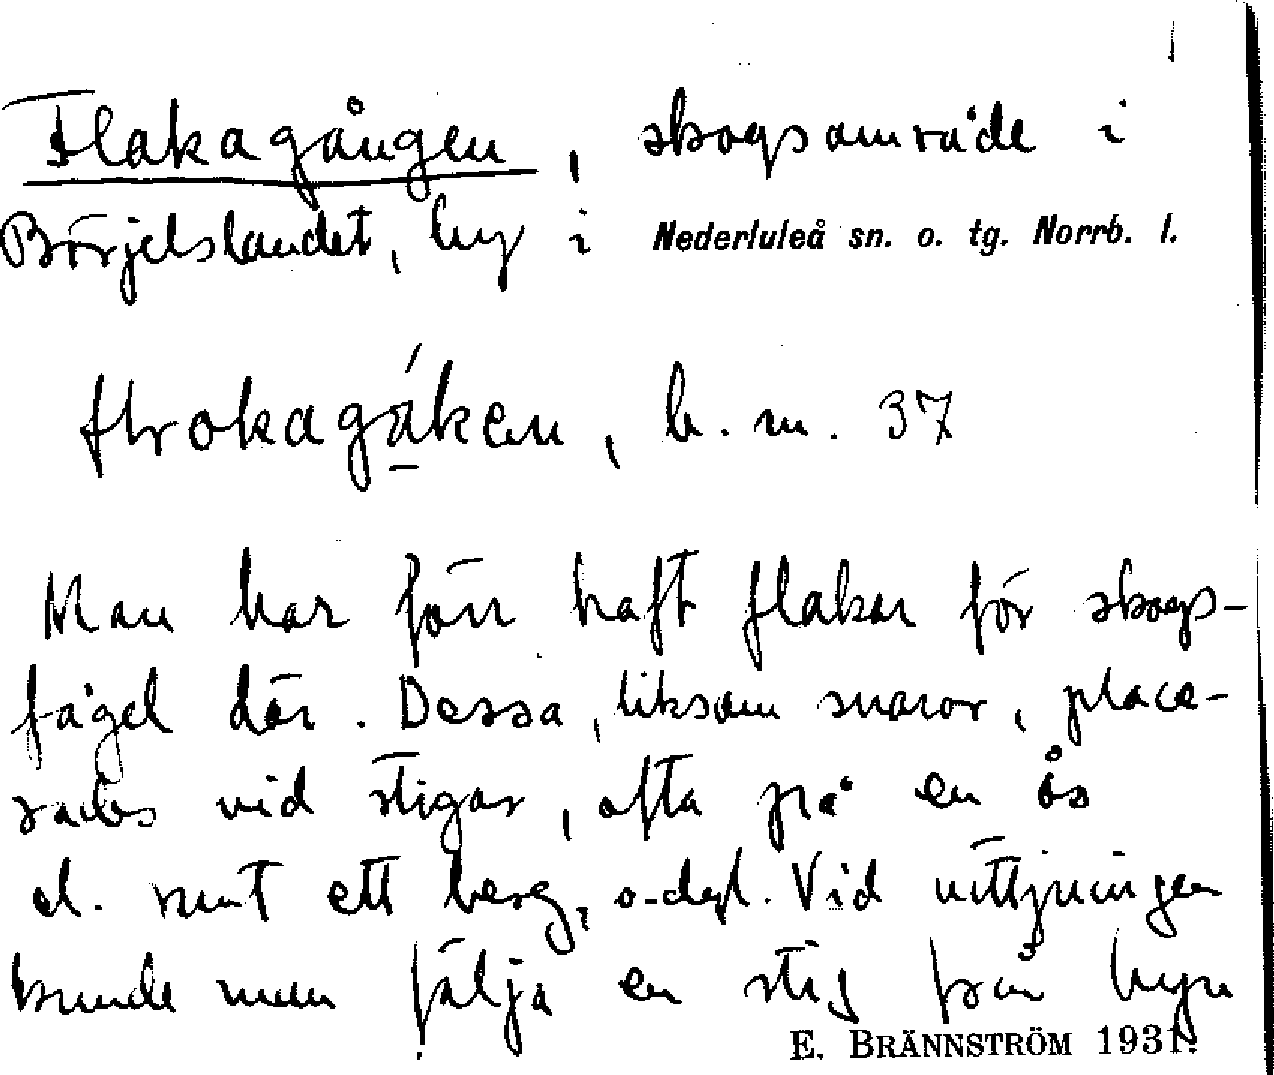 Flakagången, skogsområde i
Börjelslandet, by i Nederluleå sn. o. tg. Norrb. l.
b. m. 37
Man har förr haft flakar för skogs-
fågel där. Dessa, liksom snaror, place-
rades vid stigar, ofta på en ås
el. runt ett berg, o. dyl. Vid vittjningen
kunde man följa en stig från byn
E. BRÄNNSTRÖM 1931.